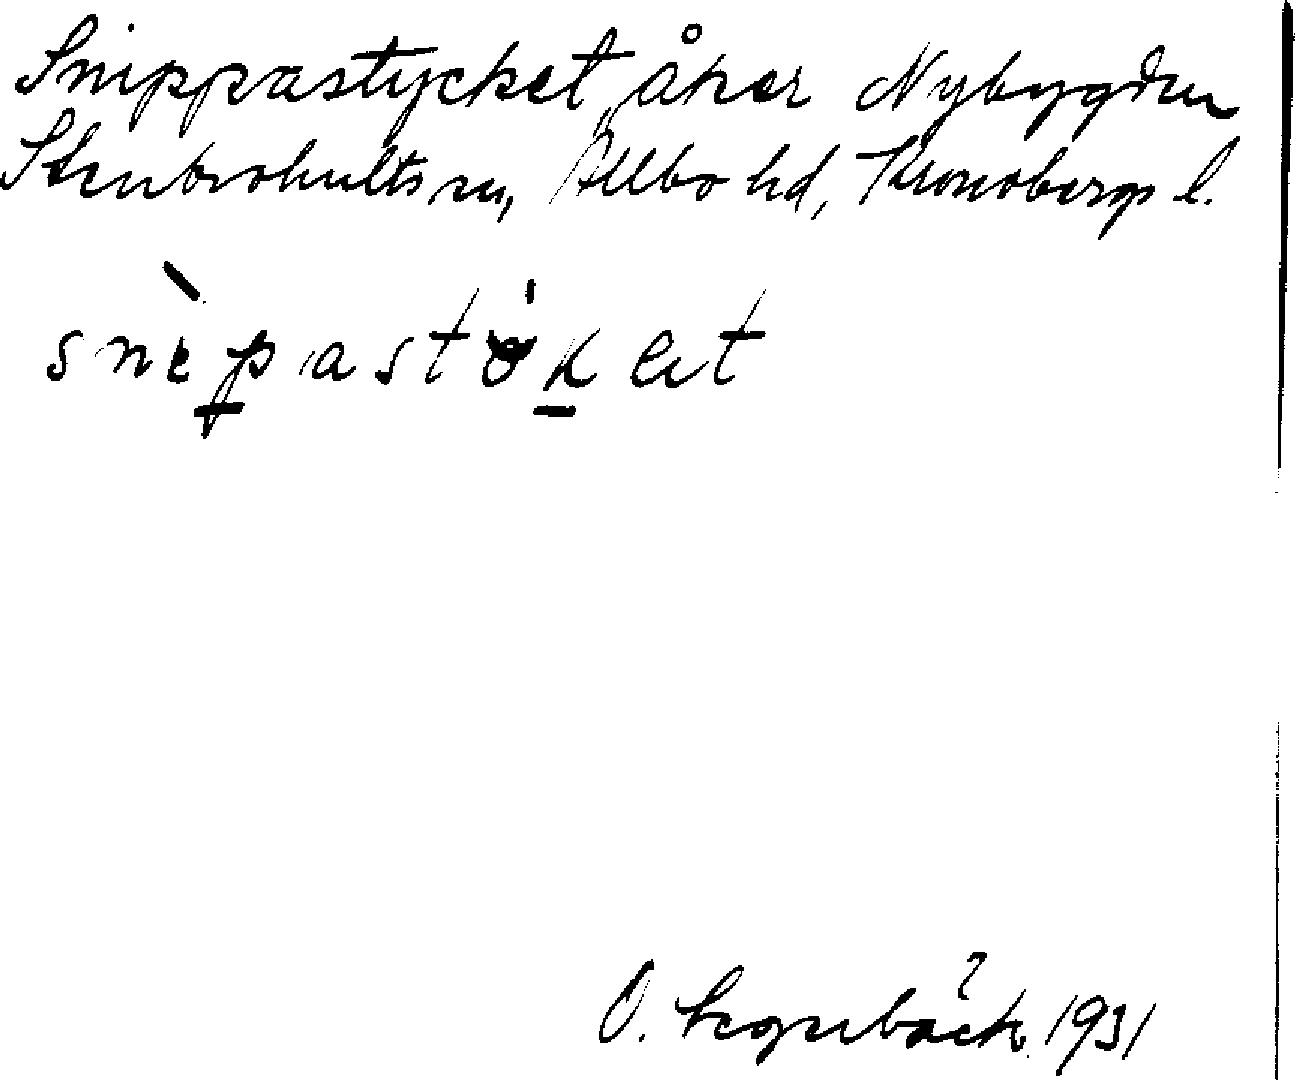 Snippastycket åker Nybygden
Stenbrohults sn, Allbo hd, Kronobergs l.
snèpastökeat
O. Legnbäck 1931